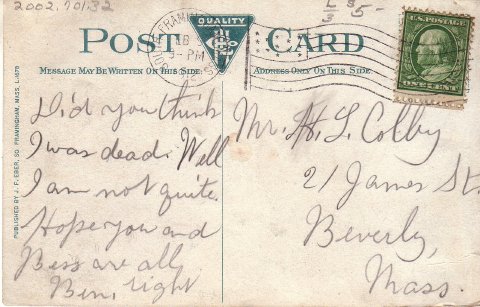 2002.701.32
L $5-
3
POST CARD
QUALITY
MESSAGE MAY BE WRITTEN ON THIS SIDE.
ADDRESS ONLY ON THIS SIDE.
U.S. POSTAGE
ONE CENT
9-PM
Did you think
I was dead. Well
I am not quite.
Hope you and
Bess are all
right
Ben,
Mr. H. L. Colby
21 James St.
Beverly,
Mass.
PUBLISHED BY J. F. EBER, SO. FRAMINGHAM, MASS. L-1678